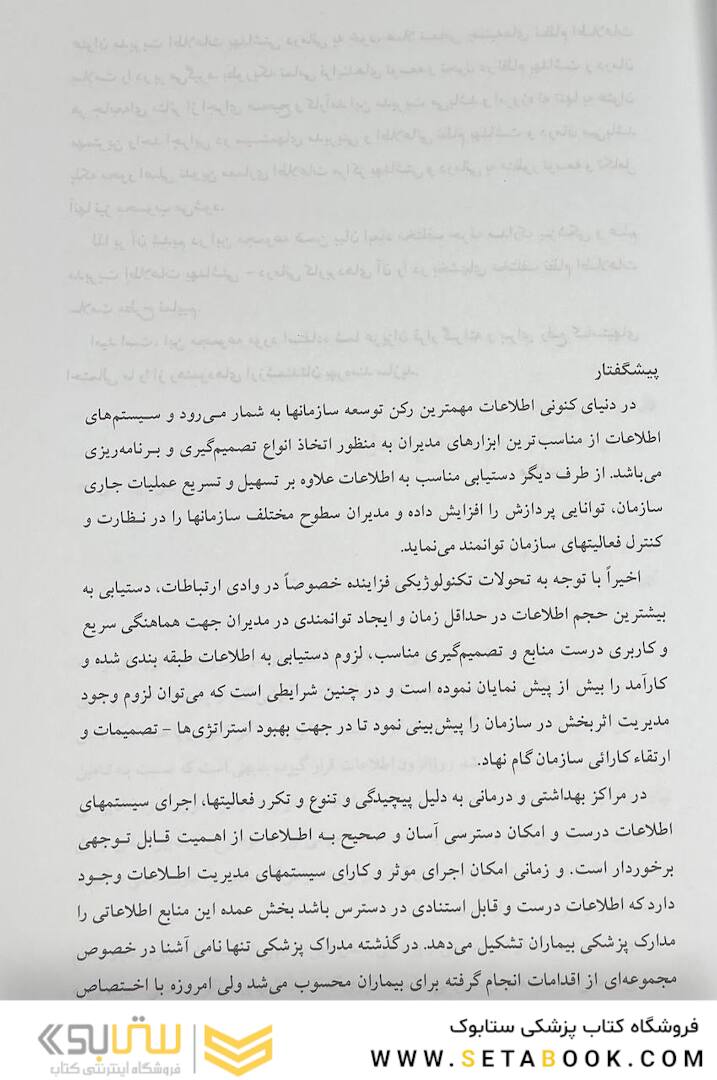 پیشگفتار
در دنیای کنونی اطلاعات مهمترین رکن توسعه سازمانها به شمار می‌رود و سیستم‌های
اطلاعات از مناسب‌ترین ابزارهای مدیران به منظور اتخاذ انواع تصمیم‌گیری و برنامه‌ریزی
می‌باشد. از طرف دیگر دستیابی مناسب به اطلاعات علاوه بر تسهیل و تسریع عملیات جاری
سازمان، توانایی پردازش را افزایش داده و مدیران سطوح مختلف سازمانها را در نظارت و
کنترل فعالیتهای سازمان توانمند می‌نماید.
اخیراً با توجه به تحولات تکنولوژیکی فزاینده خصوصاً در وادی ارتباطات، دستیابی به
بیشترین حجم اطلاعات در حداقل زمان و ایجاد توانمندی در مدیران جهت هماهنگی سریع
و کاربری درست منابع و تصمیم‌گیری مناسب، لزوم دستیابی به اطلاعات طبقه بندی شده و
کارآمد را بیش از پیش نمایان نموده است و در چنین شرایطی است که می‌توان لزوم وجود
مدیریت اثربخش در سازمان را پیش‌بینی نمود تا در جهت بهبود استراتژی‌ها – تصمیمات و
ارتقاء کارائی سازمان گام نهاد.
در مراکز بهداشتی و درمانی به دلیل پیچیدگی و تنوع و تکرر فعالیتها، اجرای سیستمهای
اطلاعات درست و امکان دسترسی آسان و صحیح به اطلاعات از اهمیت قابل توجهی
برخوردار است. و زمانی امکان اجرای موثر و کارای سیستمهای مدیریت اطلاعات وجود
دارد که اطلاعات درست و قابل استنادی در دسترس باشد بخش عمده این منابع اطلاعاتی را
مدارک پزشکی بیماران تشکیل می‌دهد. در گذشته مدراک پزشکی تنها نامی آشنا در خصوص
مجموعه‌ای از اقدامات انجام گرفته برای بیماران محسوب می‌شد ولی امروزه با اختصاص
فروشگاه کتاب پزشکی ستابوک
WWW.SETABOOK.COM
ستابوک
فروشگاه اینترنتی کتاب